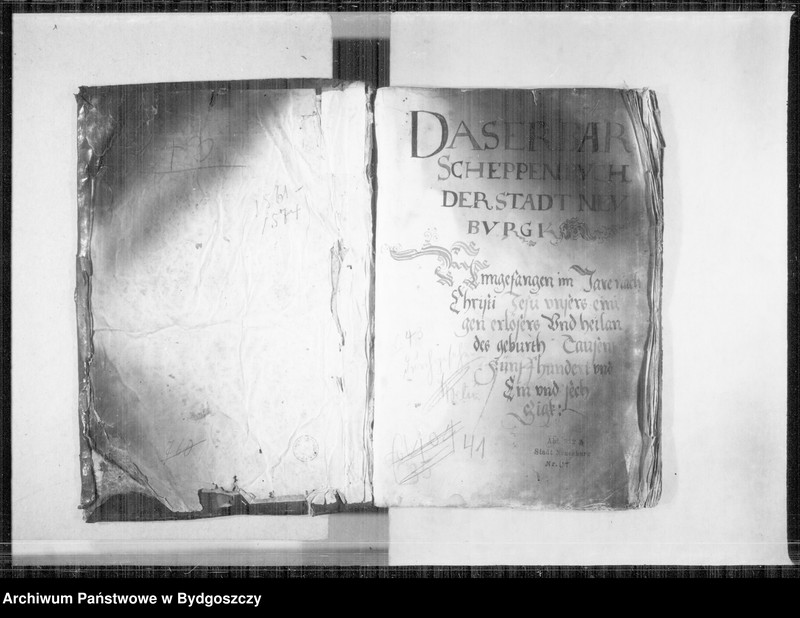 1561-
1571
DAS ERBAR
SCHEPPENBVCH
DER STADT NEV
BVRGK
Anngefangen im Jare nach
Christi Jesu vnsers eini
gen erlosers Vnd heilan
des geburth Tausen
Funffhundert vnd
Ein vnd sech
Zigk:
41
Stadt
Nr.
Archiwum Państwowe w Bydgoszczy